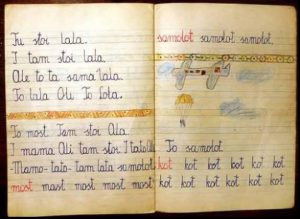 Tu stoi lala.
I tam stoi lala.
Ale to ta sama lala.
To lala Ali. To Lola.
To most. Tam stoi Ala.
I mama Ali tam stoi. I tato Ali.
-Mamo-tato-tam lata samolot.
most most most most most
samolot samolot samolot.
To samolot.
kot kot kot kot kot kot
kot kot kot kot kot kot